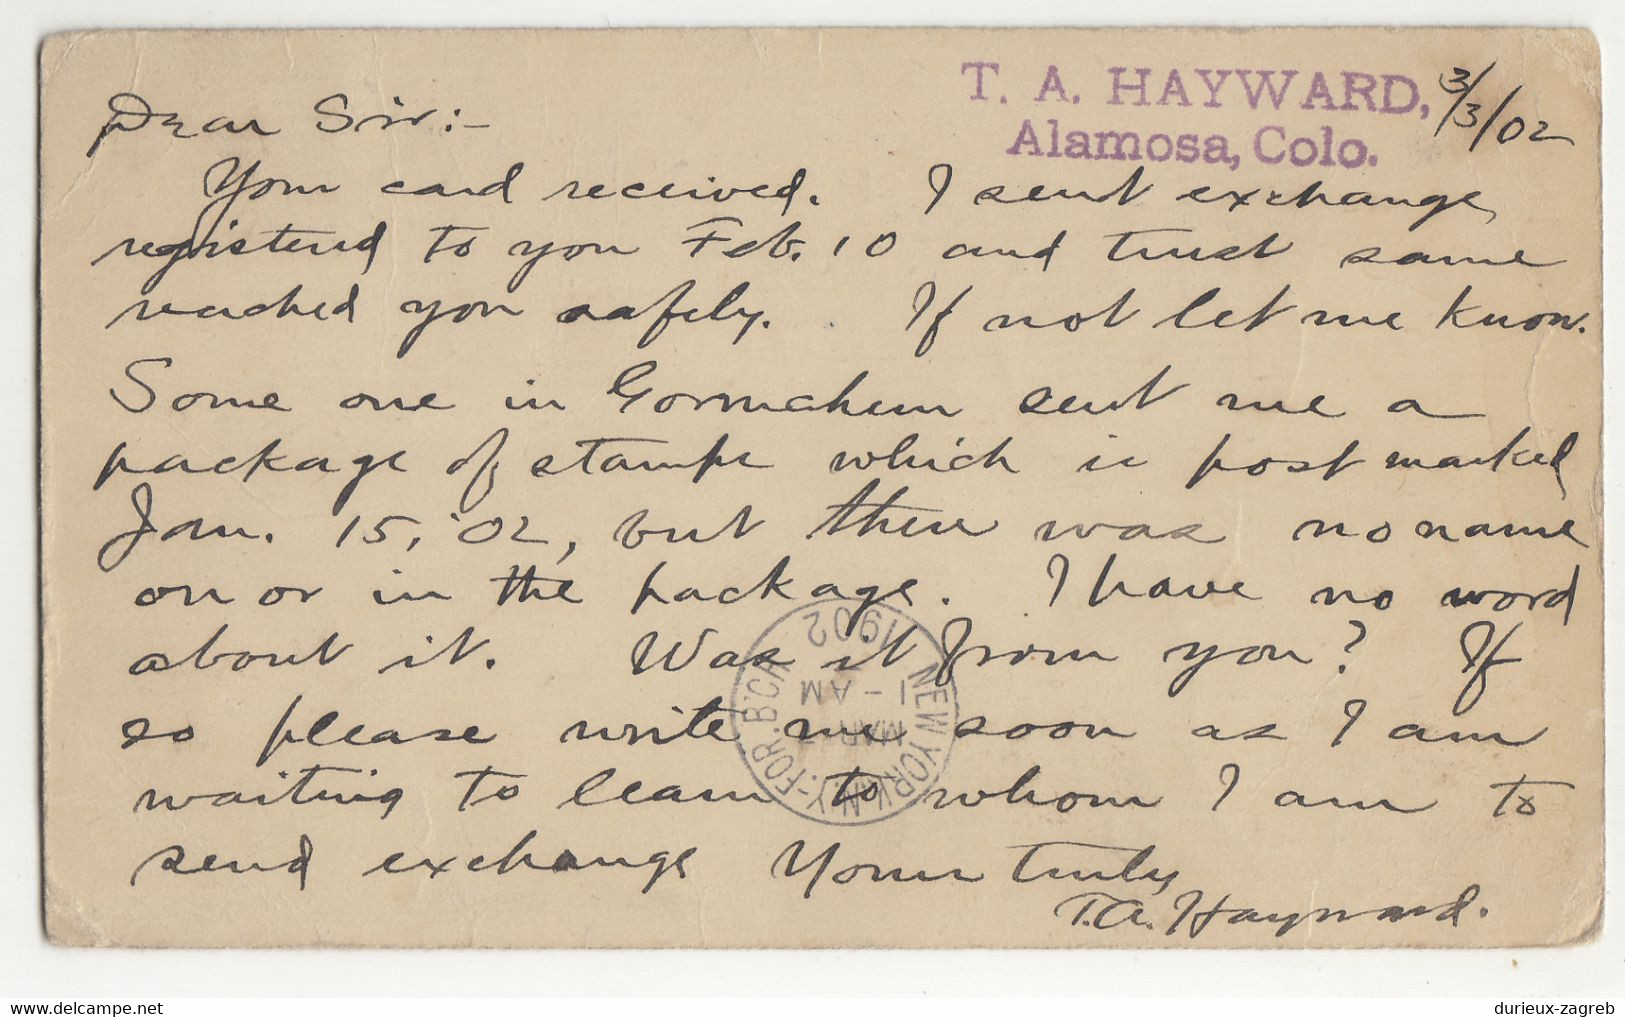 T. A. HAYWARD,
Alamosa, Colo.
3/3/02
Dear Sir:-
Your card received. I sent exchange
registered to you Feb. 10 and trust same
reached you safely. If not let me know.
Some one in sent me a
package of stamps which is post marked
Jan. 15, '02, but there was no name
on or in the package. I have no word
about it. Was it from you? If
so please write me soon as I am
waiting to learn to whom I am to
send exchange Yours truly
T.A. Hayward.
NEW YORK, N.Y.-FOR. B'CH
MAR
1-AM
1902
www.delcampe.net
durieux-zagreb